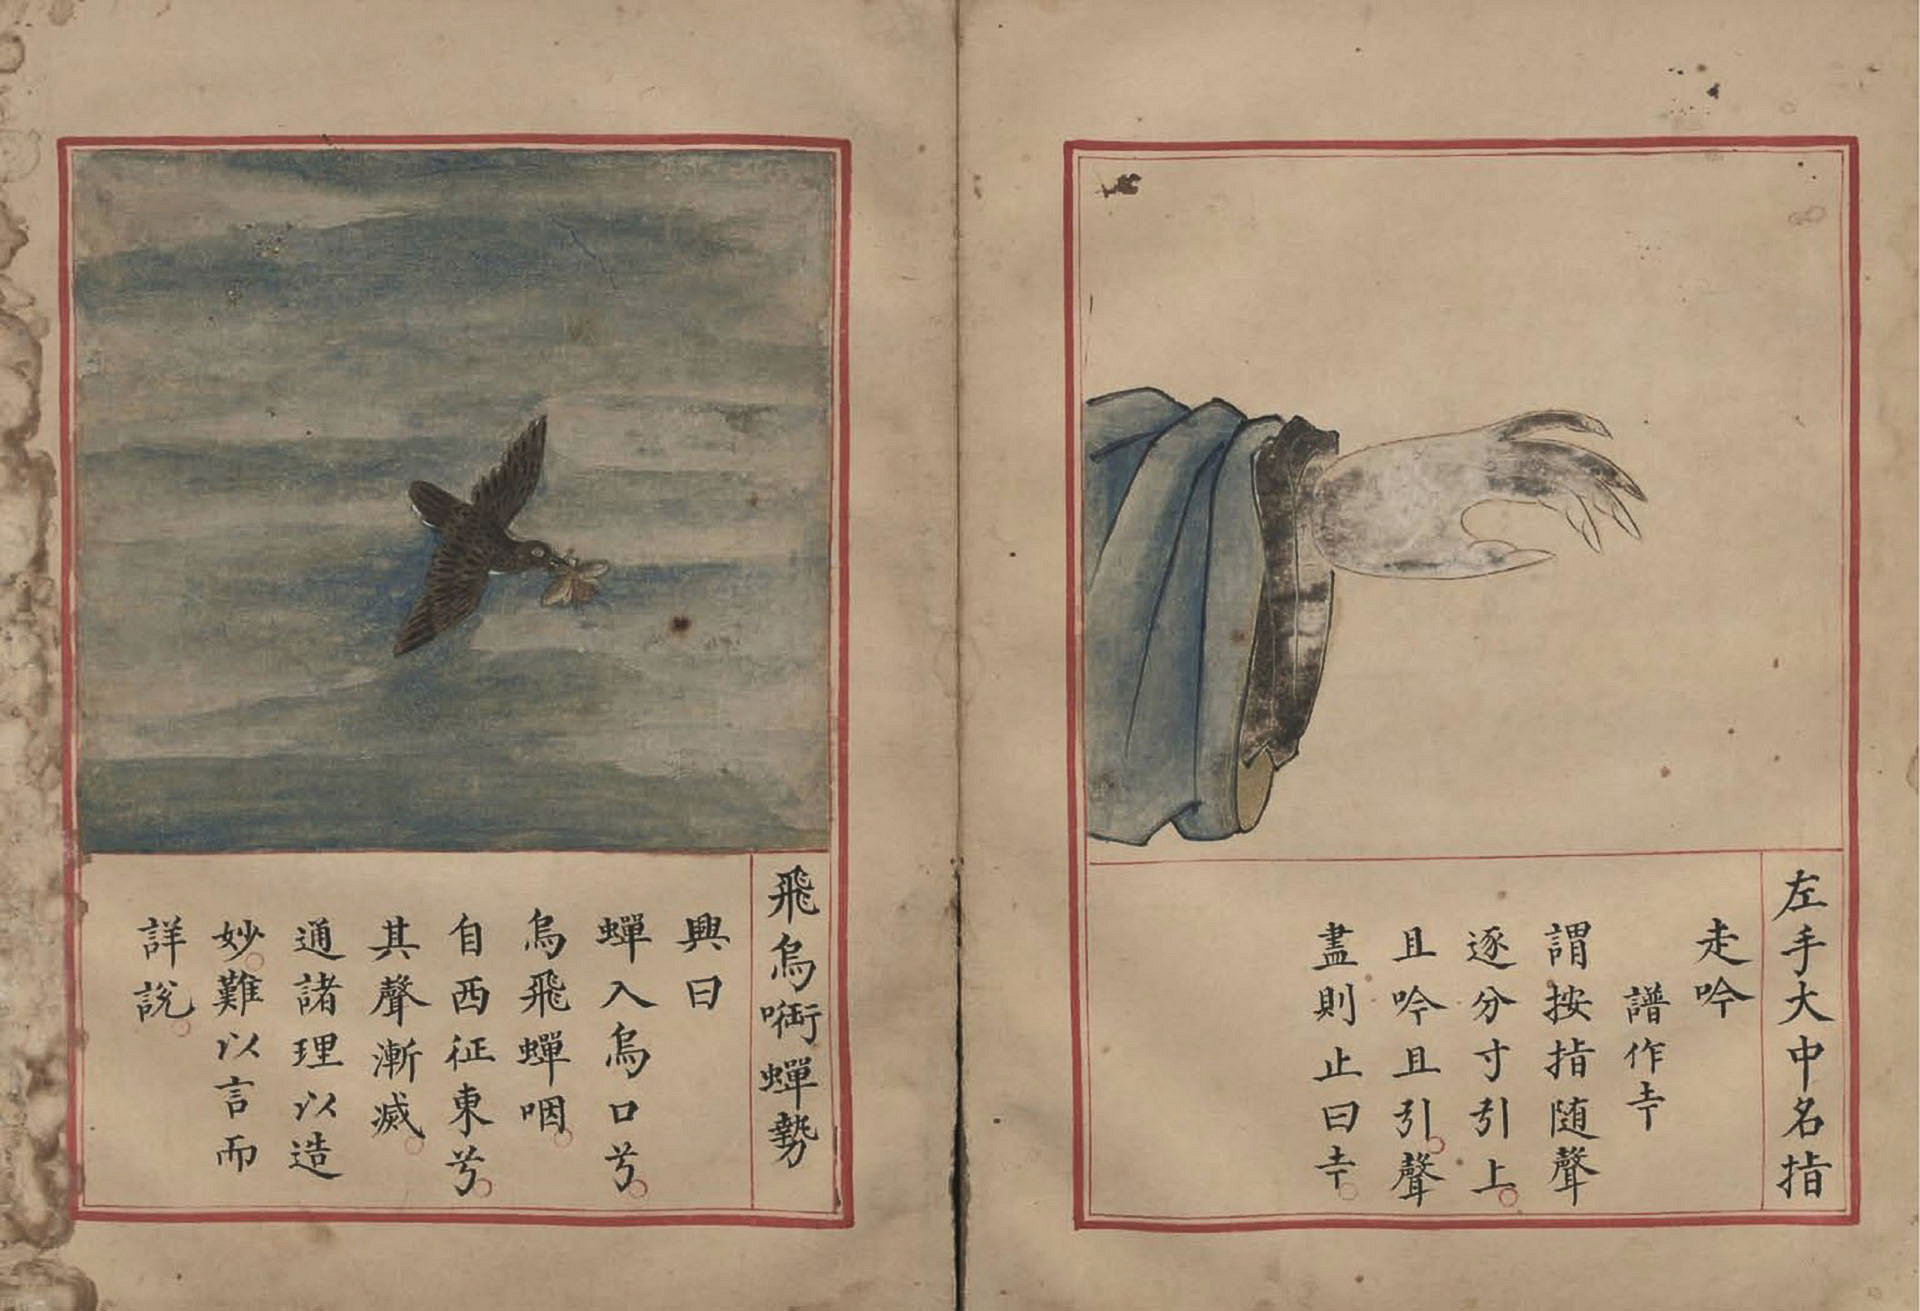 左手大中名指
走吟
譜作
謂按指随聲
逐分寸引上
且吟且引聲
盡則止曰
飛鳥啣蟬勢
興曰
蟬入鳥口兮
鳥飛蟬咽
自西征東兮
其聲漸减
通諸理以造
妙難以言而
詳說